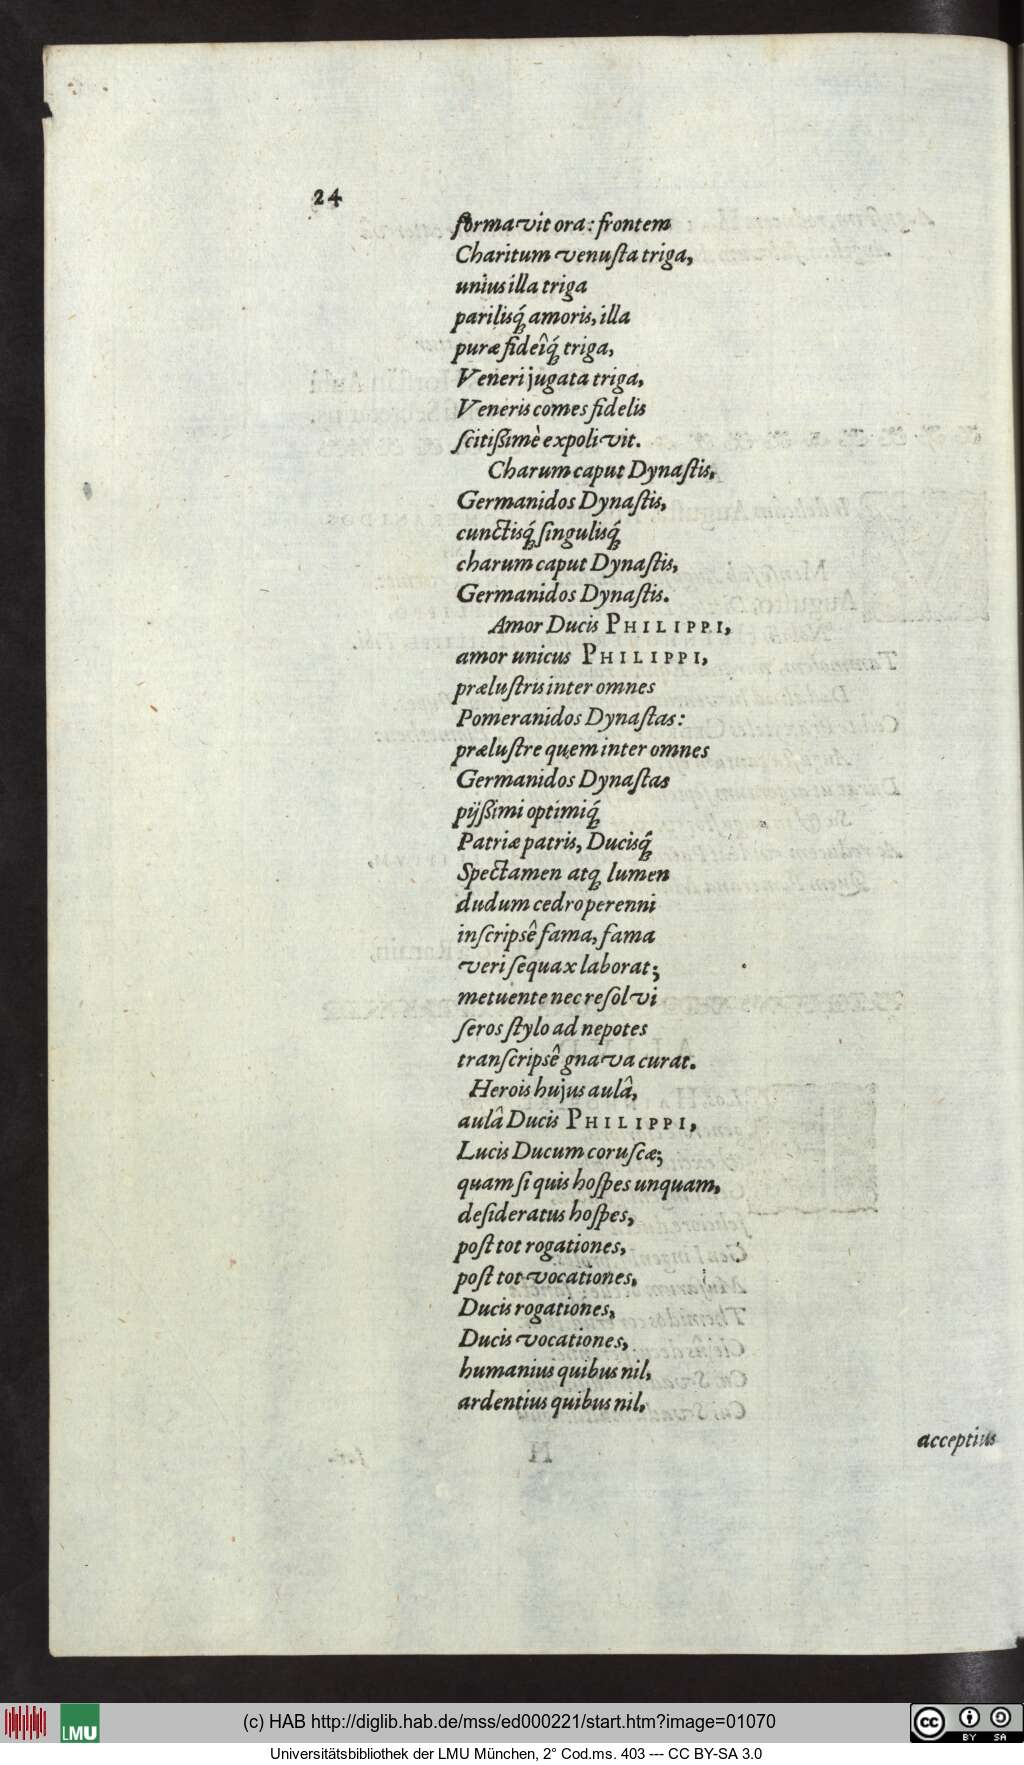 24
formavit ora: frontem
Charitum venuſta triga,
unius illa triga
parilisq́; amoris, illa
puræ fideîq́; triga,
Veneri jugata triga,
Veneris comes fidelis
ſcitißimè expolivit.
Charum caput Dynaſtis,
Germanidos Dynaſtis,
cunctisq́; ſingulisq́;
charum caput Dynaſtis,
Germanidos Dynaſtis.
Amor Ducis PHILIPPI,
amor unicus PHILIPPI,
præluſtris inter omnes
Pomeranidos Dynaſtas:
præluſtre quem inter omnes
Germanidos Dynaſtas
pijßimi optimiq́;
Patriæ patris, Ducisq́;
Spectamen atq; lumen
dudum cedro perenni
inſcripsê fama, fama
veri ſequax laborat;
metuente nec reſolvi
ſeros ſtylo ad nepotes
tranſcripsê gnava curat.
Herois hujus aulâ,
aulâ Ducis PHILIPPI,
Lucis Ducum coruſcæ;
quam ſi quis hoſpes unquam,
deſideratus hoſpes,
poſt tot rogationes,
poſt tot vocationes,
Ducis rogationes,
Ducis vocationes,
humanius quibus nil,
ardentius quibus nil,
acceptius
LMU
(c) HAB http://diglib.hab.de/mss/ed000221/start.htm?image=01070
cc BY SA
Universitätsbibliothek der LMU München, 2° Cod.ms. 403 --- CC BY-SA 3.0